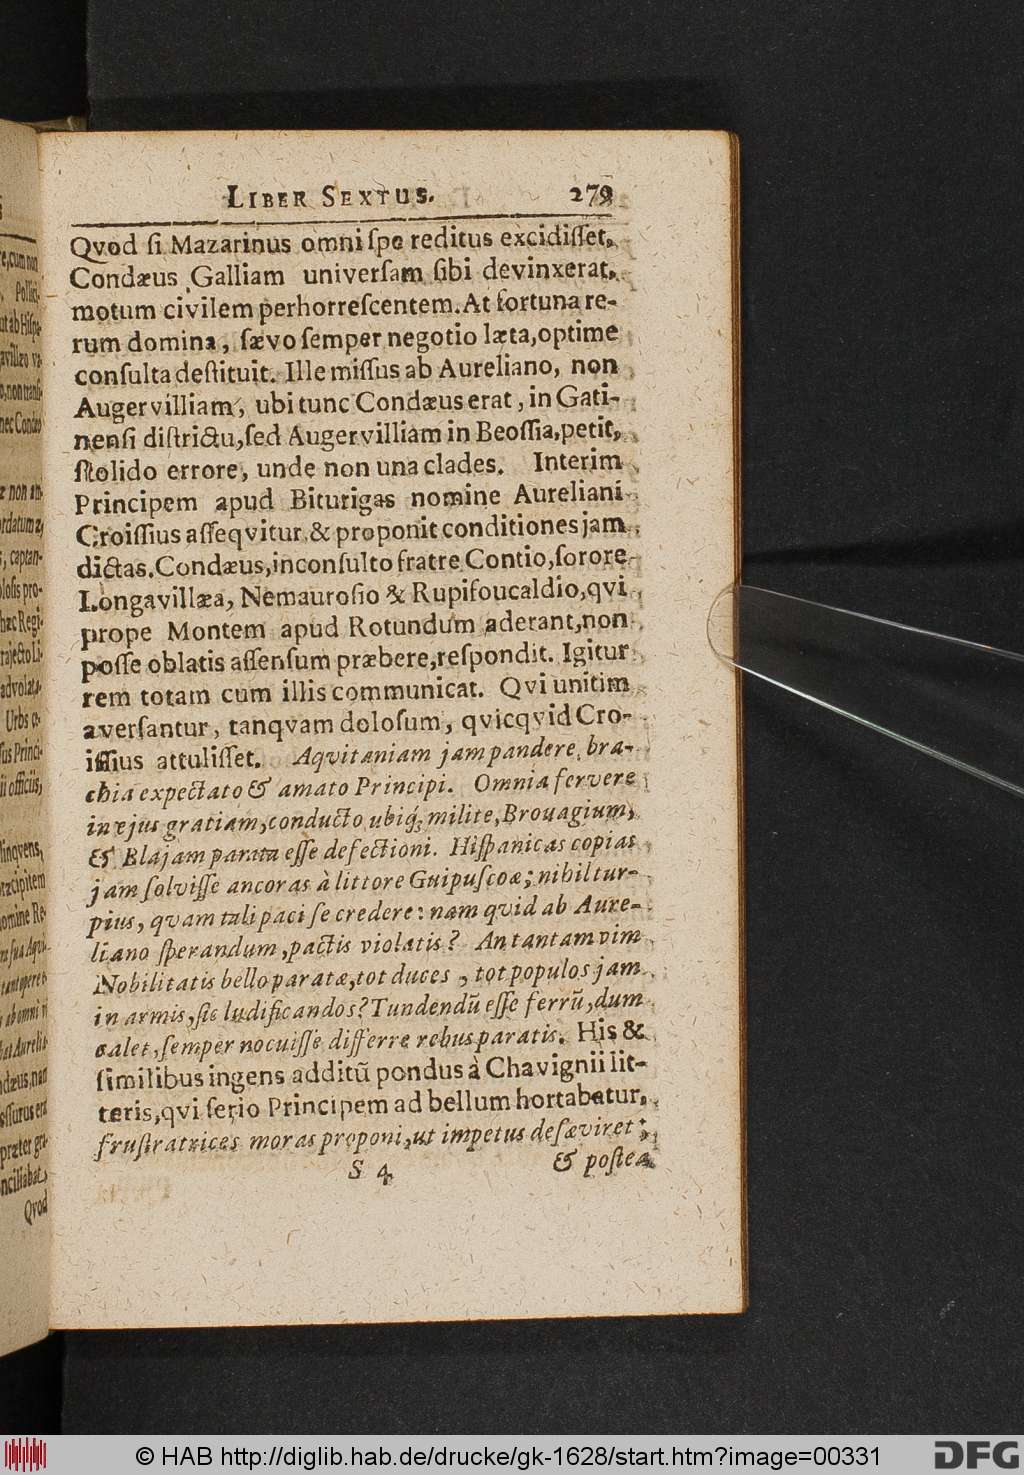 LIBER SEXTUS. 279
Qvod ſi Mazarinus omni ſpe reditus excidiſſet,
Condæus Galliam univerſam ſibi devinxerat,
motum civilem perhorreſcentem. At fortuna re-
rum domina, ſævo ſemper negotio læta, optime
conſulta deſtituit. Ille miſſus ab Aureliano, non
Augervilliam, ubi tunc Condæus erat, in Gati-
nenſi diſtrictu, ſed Augervilliam in Beoſſia, petit,
ſtolido errore, unde non una clades. Interim
Principem apud Biturigas nomine Aureliani
Croiſſius aſſeqvitur & proponit conditiones jam
dictas. Condæus, inconſulto fratre Contio, ſorore
Longavillæa, Nemauroſio & Rupifoucaldio, qvi
prope Montem apud Rotundum aderant, non
poſſe oblatis aſſenſum præbere, reſpondit. Igitur
rem totam cum illis communicat. Qvi unitim
averſantur, tanqvam doloſum, qvicqvid Cro-
iſſius attuliſſet. Aqvitaniam jam pandere bra-
chia expectato & amato Principi. Omnia fervere
in ejus gratiam, conducto ubiq́; milite, Brovagium,
& Blajam parata eſſe defectioni. Hiſpanicas copias
jam ſolviſſe ancoras à littore Guipuſcoæ; nihil tur-
pius, qvam tali paci ſe credere: nam qvid ab Aure-
liano ſperandum, pactis violatis? An tantam vim
Nobilitatis bello paratæ, tot duces, tot populos jam
in armis, ſic ludificandos? Tundendũ eſſe ferrũ, dum
calet, ſemper nocuiſſe differre rebus paratis. His &
ſimilibus ingens additũ pondus à Chavignii lit-
teris, qvi ſerio Principem ad bellum hortabatur,
fruſtratrices moras proponi, ut impetus deſæviret;
S 4 & poſtea
e, cum non
Pollici-
ut ab Hiſpa-
nec Condæo
captan-
loſis pro-
hæc Regi-
advolata
Urbs
ſus Princi-
ii officiis,
linqvens,
ræcipitem
omine Re-
tantopere
ab omni
bat Aurelia-
ndæus, nam
eſſurus erat
præter
nciliabat
Qvod
© HAB http://diglib.hab.de/drucke/gk-1628/start.htm?image=00331
DFG